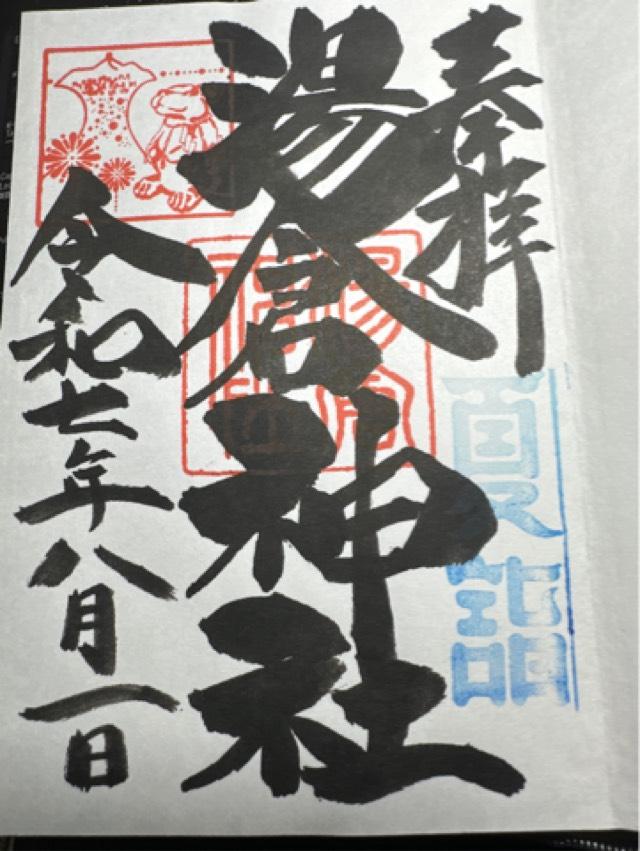 奉拝
夏詣
湯倉神社
令和七年八月一日